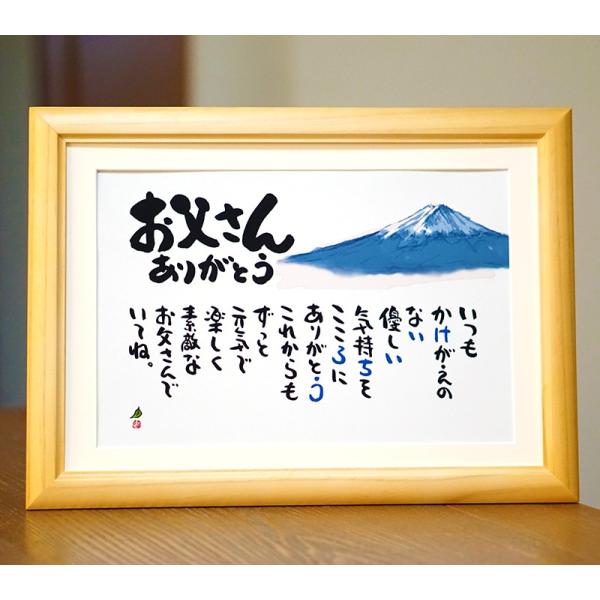 お父さん
ありがとう
いつも
かけがえの
ない
優しい
気持ちを
こころに
ありがとう
これからも
ずっと
元気で
楽しく
素敵な
お父さんで
いてね。